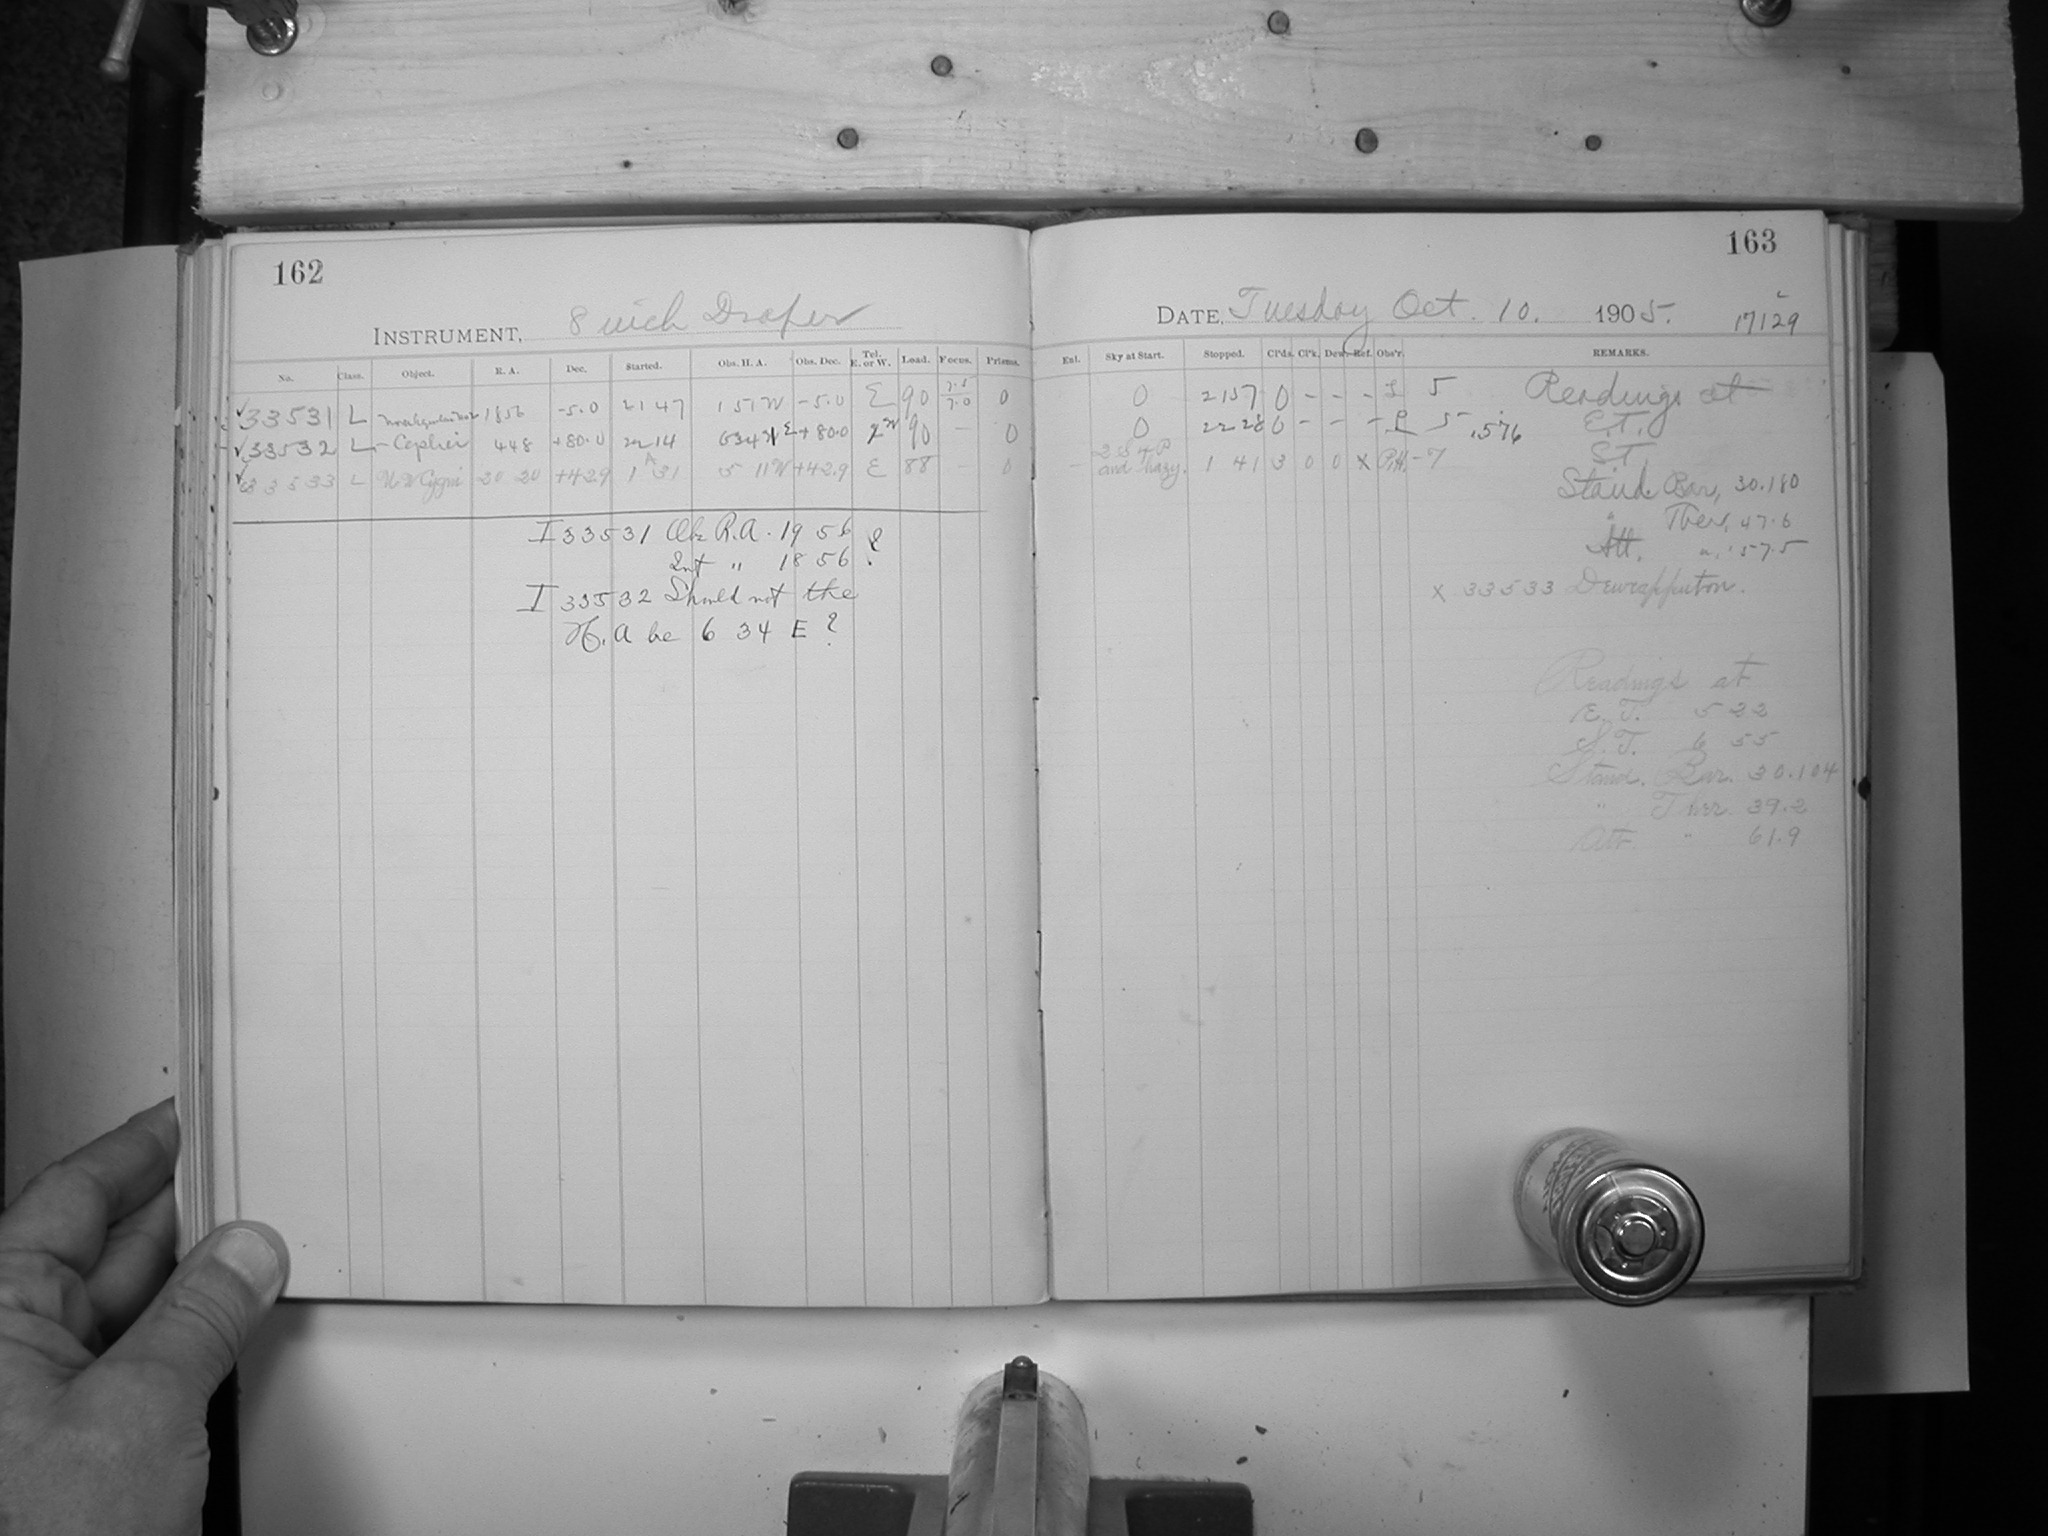 162
INSTRUMENT, 8 inch Draper
No. Class. Object. R. A. Dec. Started. Obs. H. A. Obs. Dec. Tel. E. or W. Load. Focus. Prisms.
✓33531 L 1856 -5.0 21 47 1 51 W -5.0 E 90 7.0 0
✓33532 L - Cephei 448 +80.0 22 14 634 E +80.0 W 90 - 0
✓33533 L Cygni 20 20 +42.9 1 31 5 11 W +42.9 E 88 - 0
I 33531 Obs R.A. 19 56 ?
Int " 18 56
I 33532 Should not the
H. A be 6 34 E ?
163
DATE, Tuesday Oct. 10. 1905. 17129
Exl. Sky at Start. Stopped. Cl'ds. Cl'k. Dew. Ref. Obs'r. REMARKS.
0 2157 0 - - - L 5 Readings at
0 22 28 0 - - - L 5 .576 E.T.
- and hazy. 1 41 3 0 0 X - 7 S.T.
Stand. Bar, 30.180
" Ther, 47.6
Att. " 57.5
X 33533 Dewcap put on.
Readings at
E. T. 5 22
S. T. 6 55
Stand. Bar. 30.104
" Ther. 39.2
Att " 61.9